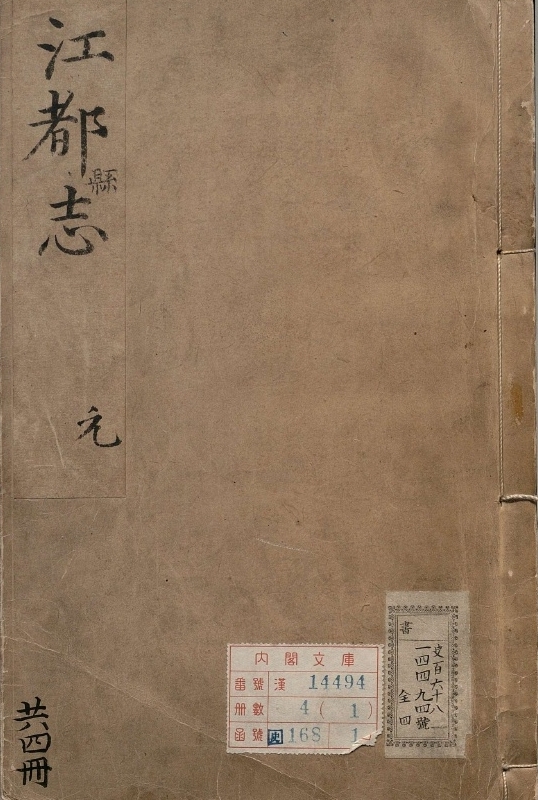 江都縣志
元
共四冊
內閣文庫
番號 漢 14494
冊數 4 ( 1 )
函號 史 168 1
書
史百六十八
一四四九四號
全四